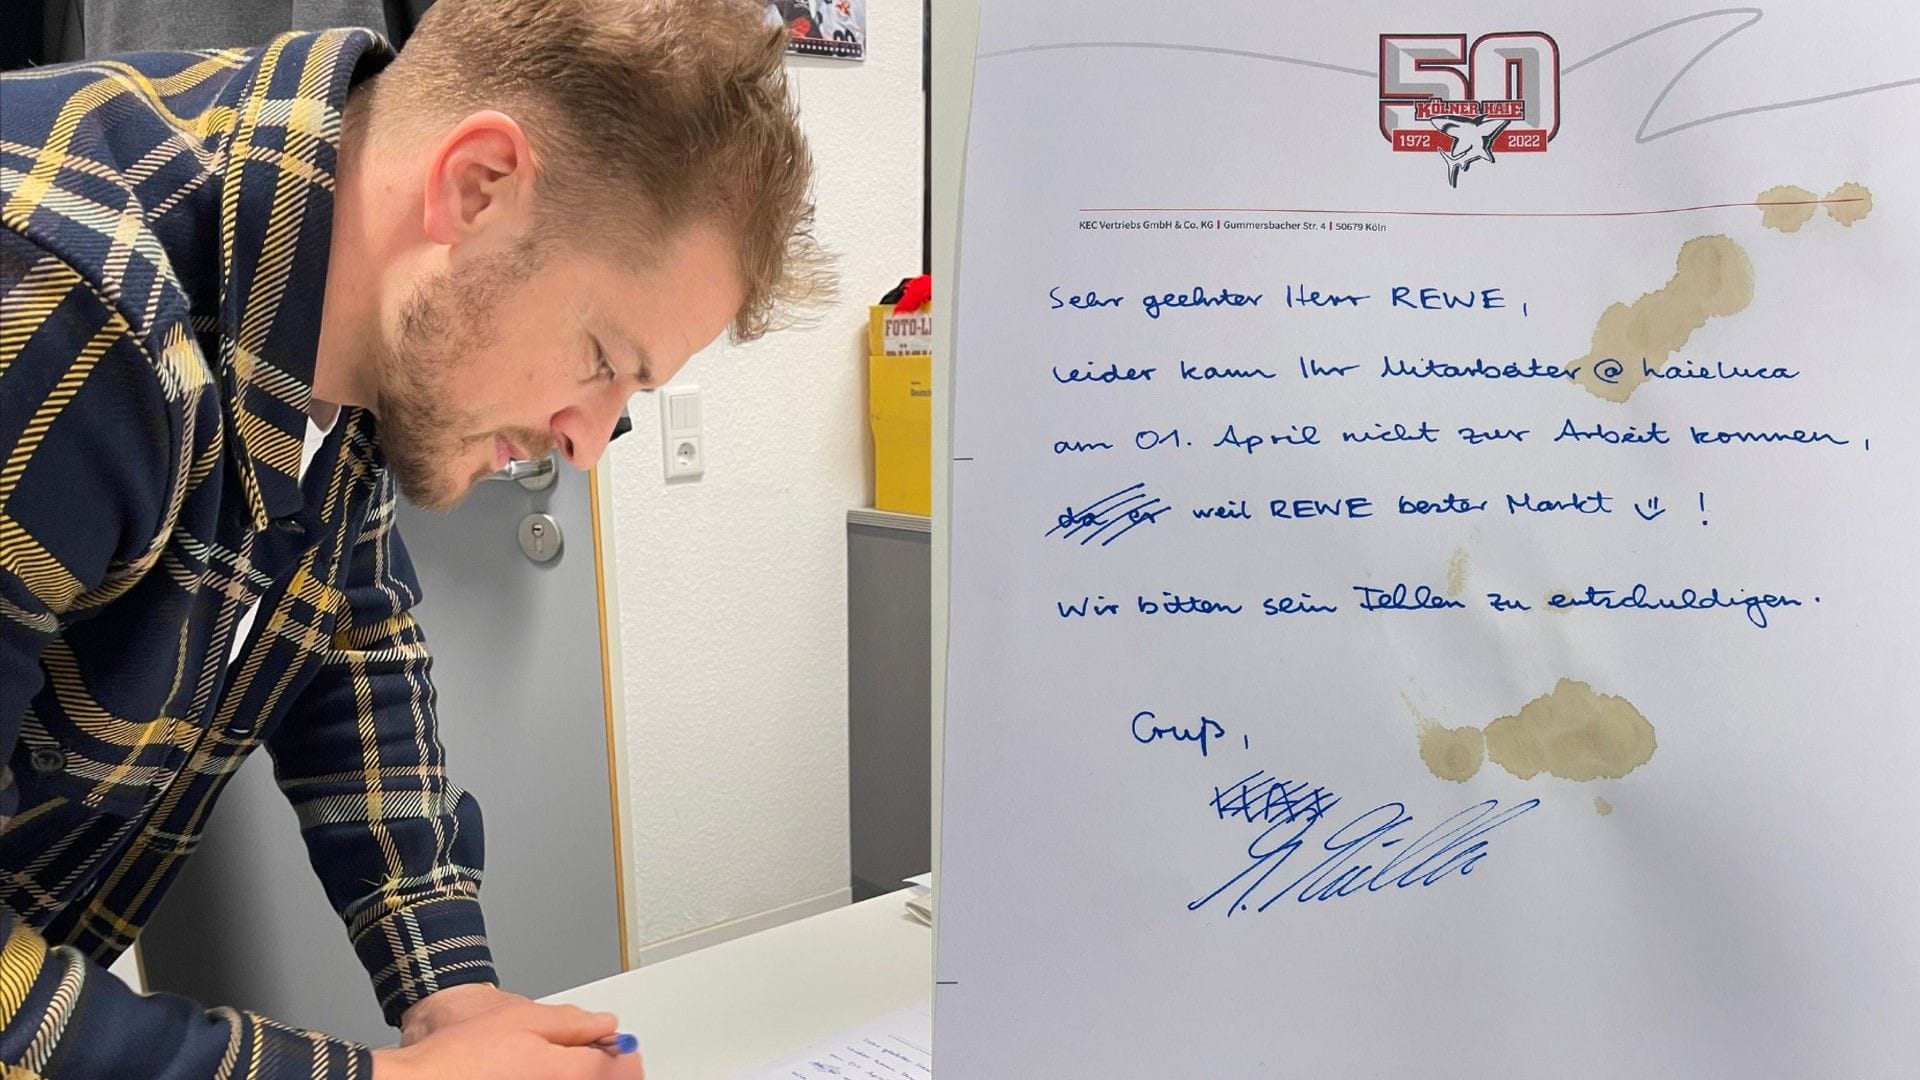 50
KÖLNER HAIE
1972 2022
KEC Vertriebs GmbH & Co. KG | Gummersbacher Str. 4 | 50679 Köln
Sehr geehrter Herr REWE,
leider kann Ihr Mitarbeiter @haieluca
am 01. April nicht zur Arbeit kommen,
da er weil REWE bester Markt !
Wir bitten sein Fehlen zu entschuldigen.
Gruß,
M. Müller
FOTO-L